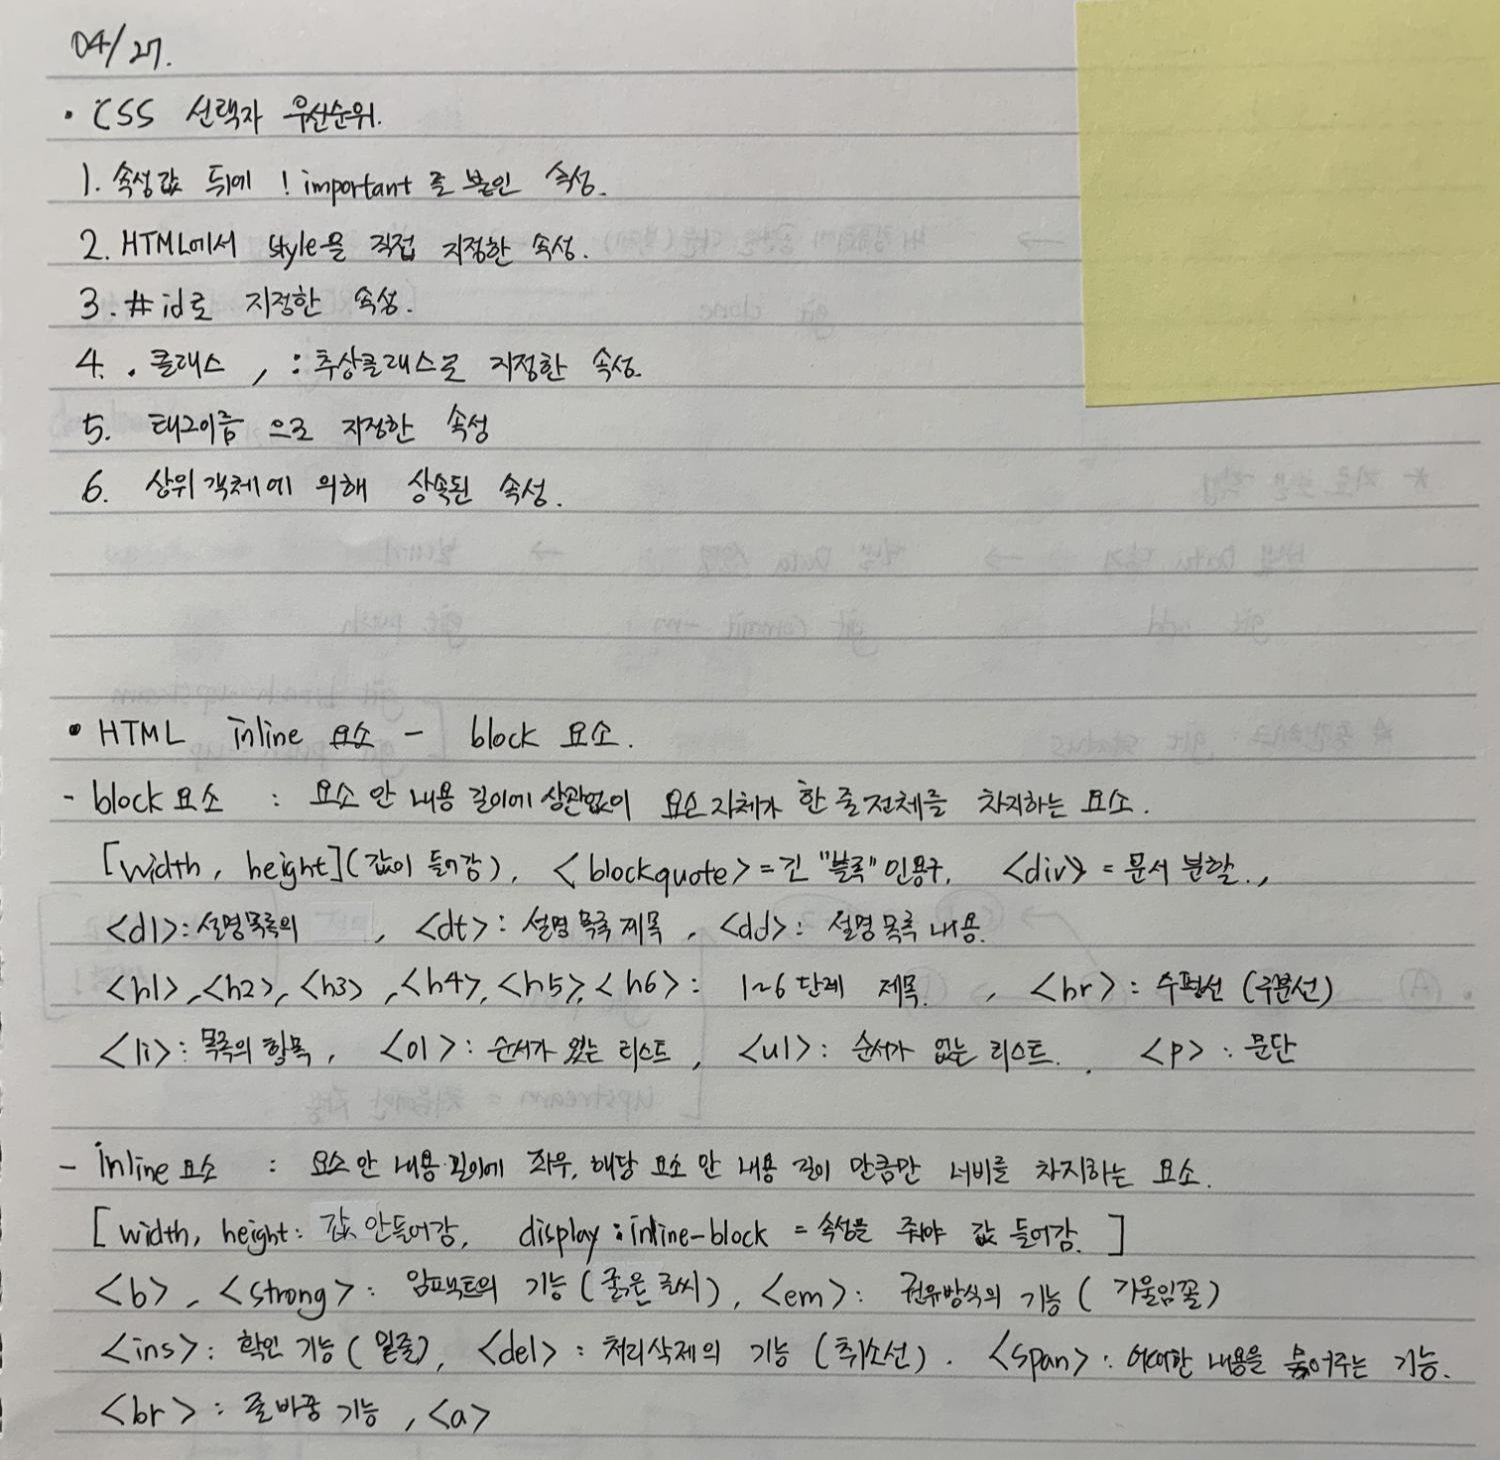 04/27.
• CSS 선택자 우선순위.
1. 속성값 뒤에 !important 를 붙인 속성.
2. HTML에서 style을 직접 지정한 속성.
3. #id로 지정한 속성.
4. .클래스, :추상클래스로 지정한 속성.
5. 태그이름 으로 지정한 속성
6. 상위객체에 의해 상속된 속성.
• HTML inline 요소 - block 요소.
- block 요소 : 요소 안 내용 길이에 상관없이 요소 자체가 한 줄 전체를 차지하는 요소.
[width, height](값이 들어감), <blockquote>=긴 "블록" 인용구, <div> = 문서 분할.,
<dl>: 설명목록의 , <dt>: 설명 목록 제목, <dd>: 설명 목록 내용.
<h1>, <h2>, <h3>, <h4>, <h5>, <h6>: 1~6 단계 제목. , <hr>: 수평선 (구분선)
<li>: 목록의 항목, <ol>: 순서가 있는 리스트, <ul>: 순서가 없는 리스트. , <p>: 문단
- inline 요소 : 요소 안 내용 길이에 좌우, 해당 요소 안 내용 길이 만큼만 너비를 차지하는 요소.
[width, height: 값 안들어감, display: inline-block = 속성을 줘야 값 들어감. ]
<b>, <strong>: 임팩트의 기능 (굵은 글씨), <em>: 권유방식의 기능 ( 기울임꼴)
<ins>: 확인 기능 ( 밑줄), <del>: 처리삭제의 기능 (취소선). <span>: 어떠한 내용을 묶어주는 기능.
<br>: 줄바꿈 기능, <a>